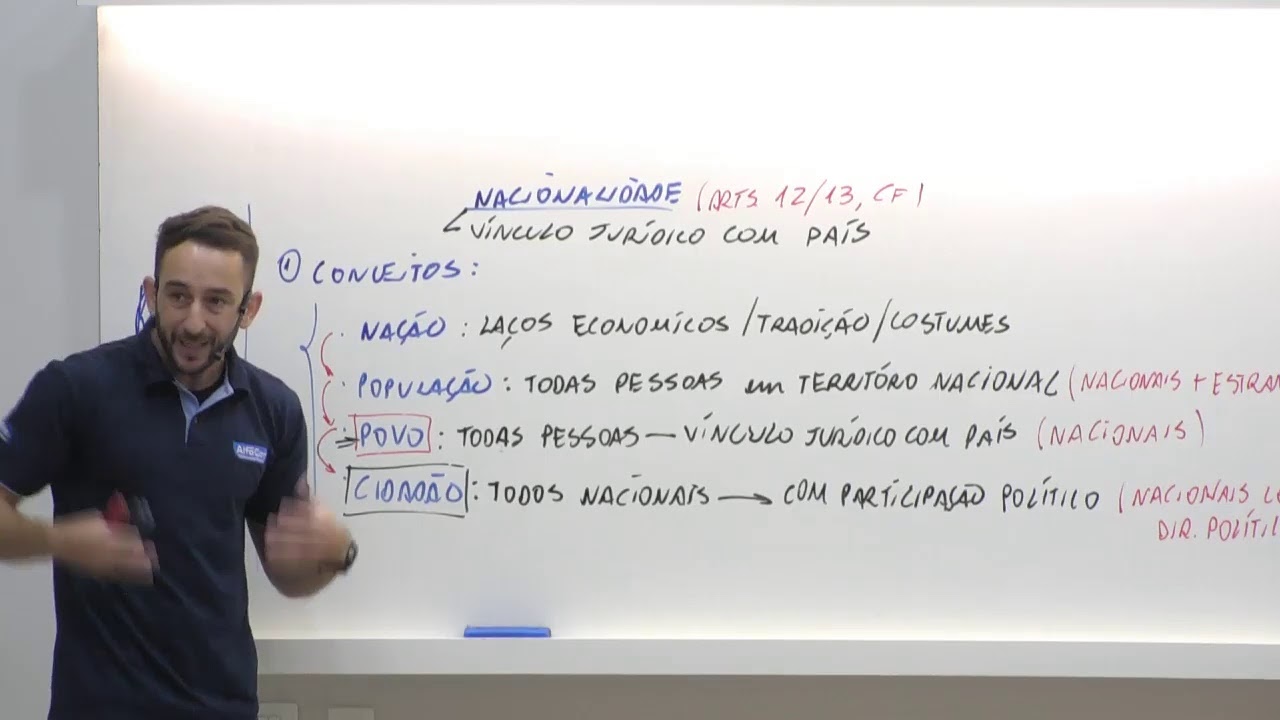 NACIONALIDADE (ARTS 12/13, CF)
VÍNCULO JURÍDICO COM PAÍS
① CONCEITOS:
· NAÇÃO: LAÇOS ECONOMICOS/TRADIÇÃO/COSTUMES
· POPULAÇÃO: TODAS PESSOAS em TERRITÓRO NACIONAL (NACIONAIS + ESTRAN
· POVO: TODAS PESSOAS — VÍNCULO JURÍDICO COM PAÍS (NACIONAIS)
CIDADÃO: TODOS NACIONAIS → COM PARTICIPAÇÃO POLÍTICO (NACIONAIS
DIR. POLÍTI
AlfaCon